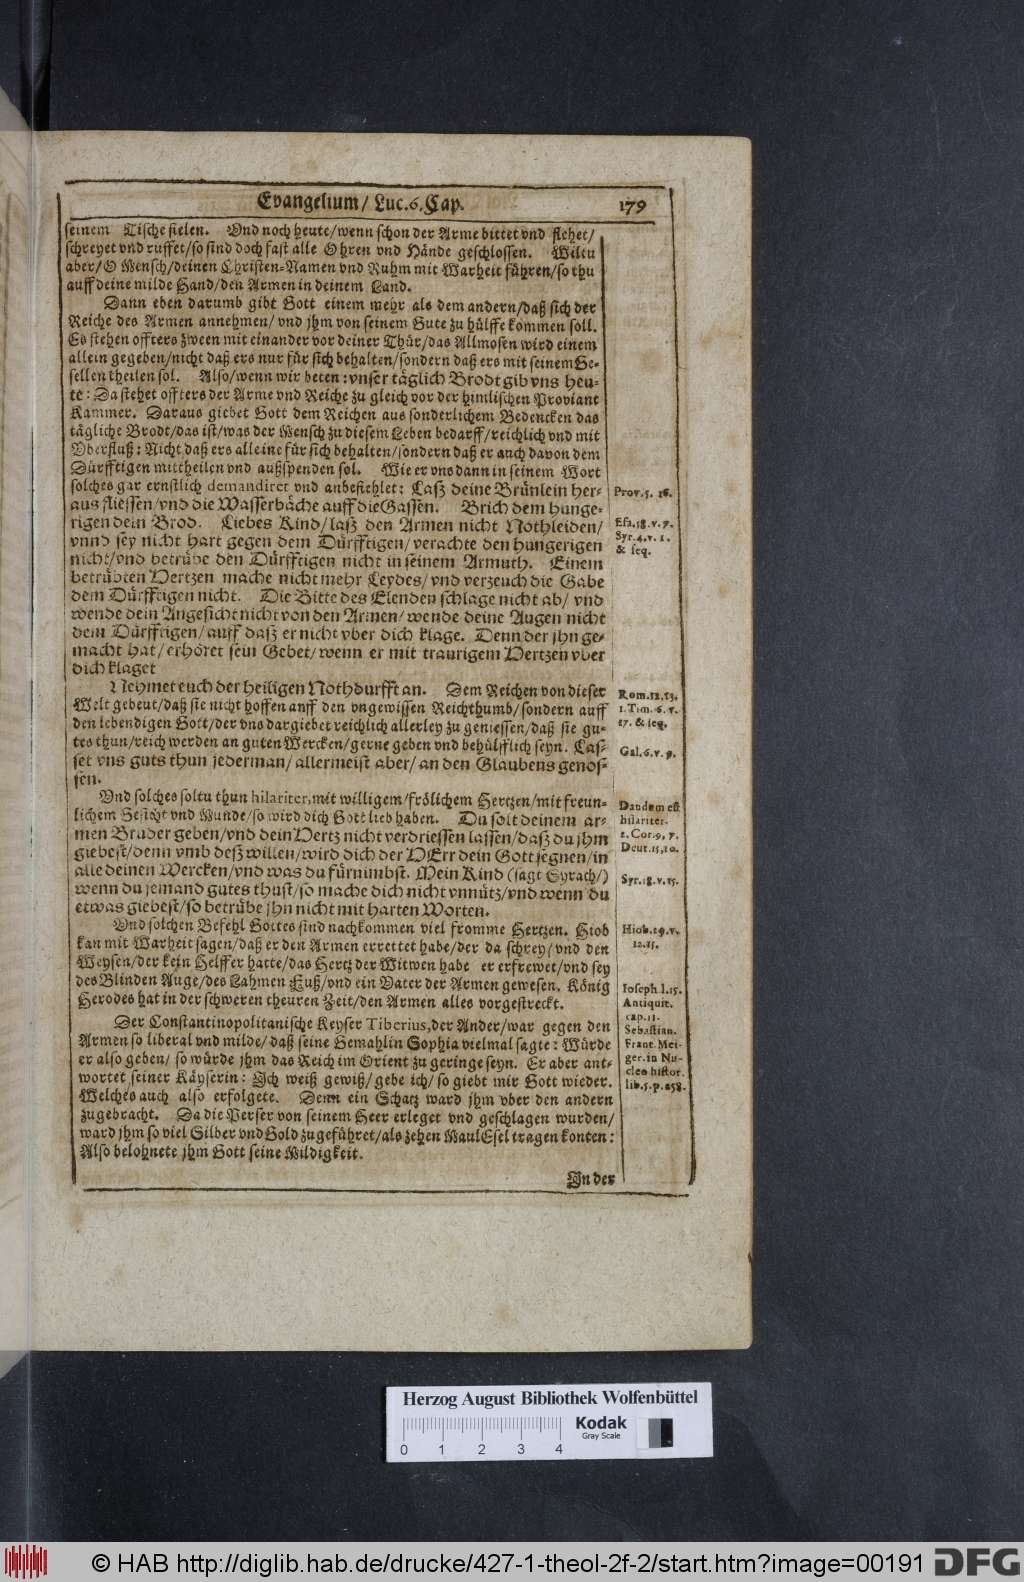 Evangelium/ Luc. 6. Cap. 179
seinem Tische fielen. Vnd noch heute/wenn schon der Arme bittet vnd flehet/
schreyet vnd ruffet/so sind doch fast alle Ohren vnd Hände geschlossen. Wiltu
aber/O Mensch/deinen Christen-Namen vnd Ruhm mit Warheit führen/so thu
auff deine milde Hand/den Armen in deinem Land.
Dann eben darumb gibt Gott einem mehr als dem andern/daß sich der
Reiche des Armen annehmen/vnd jhm von seinem Gute zu hülffe kommen soll.
Es stehen offters zween mit einander vor deiner Thür/das Allmosen wird einem
allein gegeben/nicht daß ers nur für sich behalten/sondern daß ers mit seinem Ge-
sellen theilen sol. Also/wenn wir beten: vnser täglich Brodt gib vns heu-
te: Da stehet offters der Arme vnd Reiche zu gleich vor der himlischen Proviant
Kammer. Daraus giebet Gott dem Reichen aus sonderlichem Bedencken das
tägliche Brodt/das ist/was der Mensch zu diesem Leben bedarff/reichlich vnd mit
Vberfluß: Nicht daß ers alleine für sich behalten/sondern daß er auch davon dem
Dürfftigen mittheilen vnd außspenden sol. Wie er vns dann in seinem Wort
solches gar ernstlich demandiret vnd anbefiehlet: Laß deine Brünlein her-
aus fliessen/vnd die Wasserbäche auff die Gassen. Brich dem hunge-
rigen dein Brod. Liebes Kind/laß den Armen nicht Nothleiden/
vnnd sey nicht hart gegen dem Dürfftigen/verachte den hungerigen
nicht/vnd betrübe den Dürfftigen nicht in seinem Armuth. Einem
betrübten Hertzen mache nicht mehr Leydes/vnd verzeuch die Gabe
dem Dürfftigen nicht. Die Bitte des Elenden schlage nicht ab/ vnd
wende dein Angesicht nicht von den Armen/wende deine Augen nicht
dem Dürfftigen/auff daß er nicht vber dich klage. Denn der jhn ge-
macht hat/erhöret sein Gebet/wenn er mit traurigem Hertzen vber
dich klaget
Nehmet euch der heiligen Nothdurfft an. Dem Reichen von dieser
Welt gebeut/daß sie nicht hoffen auff den vngewissen Reichthumb/sondern auff
den lebendigen Gott/der vns dargiebet reichlich allerley zu geniessen/daß sie gu-
tes thun/reich werden an guten Wercken/gerne geben vnd behülfflich seyn. Las-
set vns guts thun jederman/allermeist aber/an den Glaubens genos-
sen.
Vnd solches soltu thun hilariter, mit willigem/frölichem Hertzen/mit freun-
lichem Gesicht vnd Munde/so wird dich Gott lieb haben. Du solt deinem ar-
men Bruder geben/vnd dein Hertz nicht verdriessen lassen/daß du jhm
giebest/denn vmb deß willen/wird dich der HErr dein Gott segnen/in
alle deinen Wercken/vnd was du fürnimbst. Mein Kind (sagt Syrach/)
wenn du jemand gutes thust/so mache dich nicht vnnütz/vnd wenn du
etwas giebest/so betrübe jhn nicht mit harten Worten.
Vnd solchen Befehl Gottes sind nachkommen viel fromme Hertzen. Hiob
kan mit Warheit sagen/daß er den Armen errettet habe/der da schrey/vnd den
Weysen/der kein Helffer hatte/das Hertz der Witwen habe er erfrewet/vnd sey
des Blinden Auge/des Lahmen Fuß/vnd ein Vater der Armen gewesen. König
Herodes hat in der schweren theuren Zeit/den Armen alles vorgestreckt.
Der Constantinopolitanische Keyser Tiberius, der Ander/war gegen den
Armen so liberal vnd milde/daß seine Gemahlin Sophia vielmal sagte: Würde
er also geben/ so würde jhm das Reich im Orient zu geringe seyn. Er aber ant-
wortet seiner Käyserin: Ich weiß gewiß/gebe ich/so giebt mir Gott wieder.
Welches auch also erfolgete. Denn ein Schatz ward jhm vber den andern
zugebracht. Da die Perser von seinem Heer erleget vnd geschlagen wurden/
ward jhm so viel Silber vnd Gold zugeführet/als zehen MaulEsel tragen konten:
Also belohnete jhm Gott seine Mildigkeit.
In der
Prov. 5. 16.
Esa. 58. v. 7.
Syr. 4. v. 1.
& seq.
Rom. 12. 13.
1. Tim. 6. v.
17. & seq.
Gal. 6. v. 9.
Dandum est
hilariter.
2. Cor. 9, 7.
Deut. 15, 10.
Syr. 18. v. 15.
Hiob. 29. v.
12. 15.
Ioseph l. 15.
Antiquit.
cap. 11.
Sebastian.
Franc. Mei-
ger. in Nu-
cleo histor.
lib. 5. p. 258.
Herzog August Bibliothek Wolfenbüttel
Kodak
Gray Scale
0 1 2 3 4
© HAB http://diglib.hab.de/drucke/427-1-theol-2f-2/start.htm?image=00191
DFG